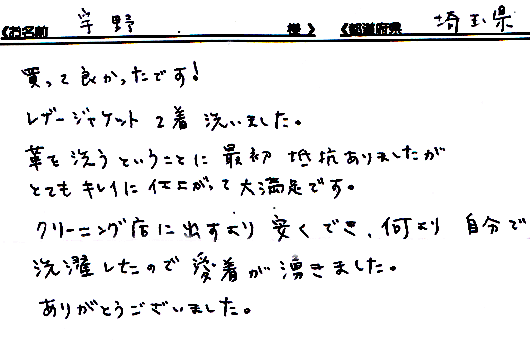 《お名前 宇野 様》 《都道府県 埼玉県
買って良かったです!
レザージャケット2着洗いました。
革を洗うということに最初抵抗ありましたが
とてもキレイに仕上がって大満足です。
クリーニング店に出すより安くでき、何より自分で
洗濯したので愛着が湧きました。
ありがとうございました。